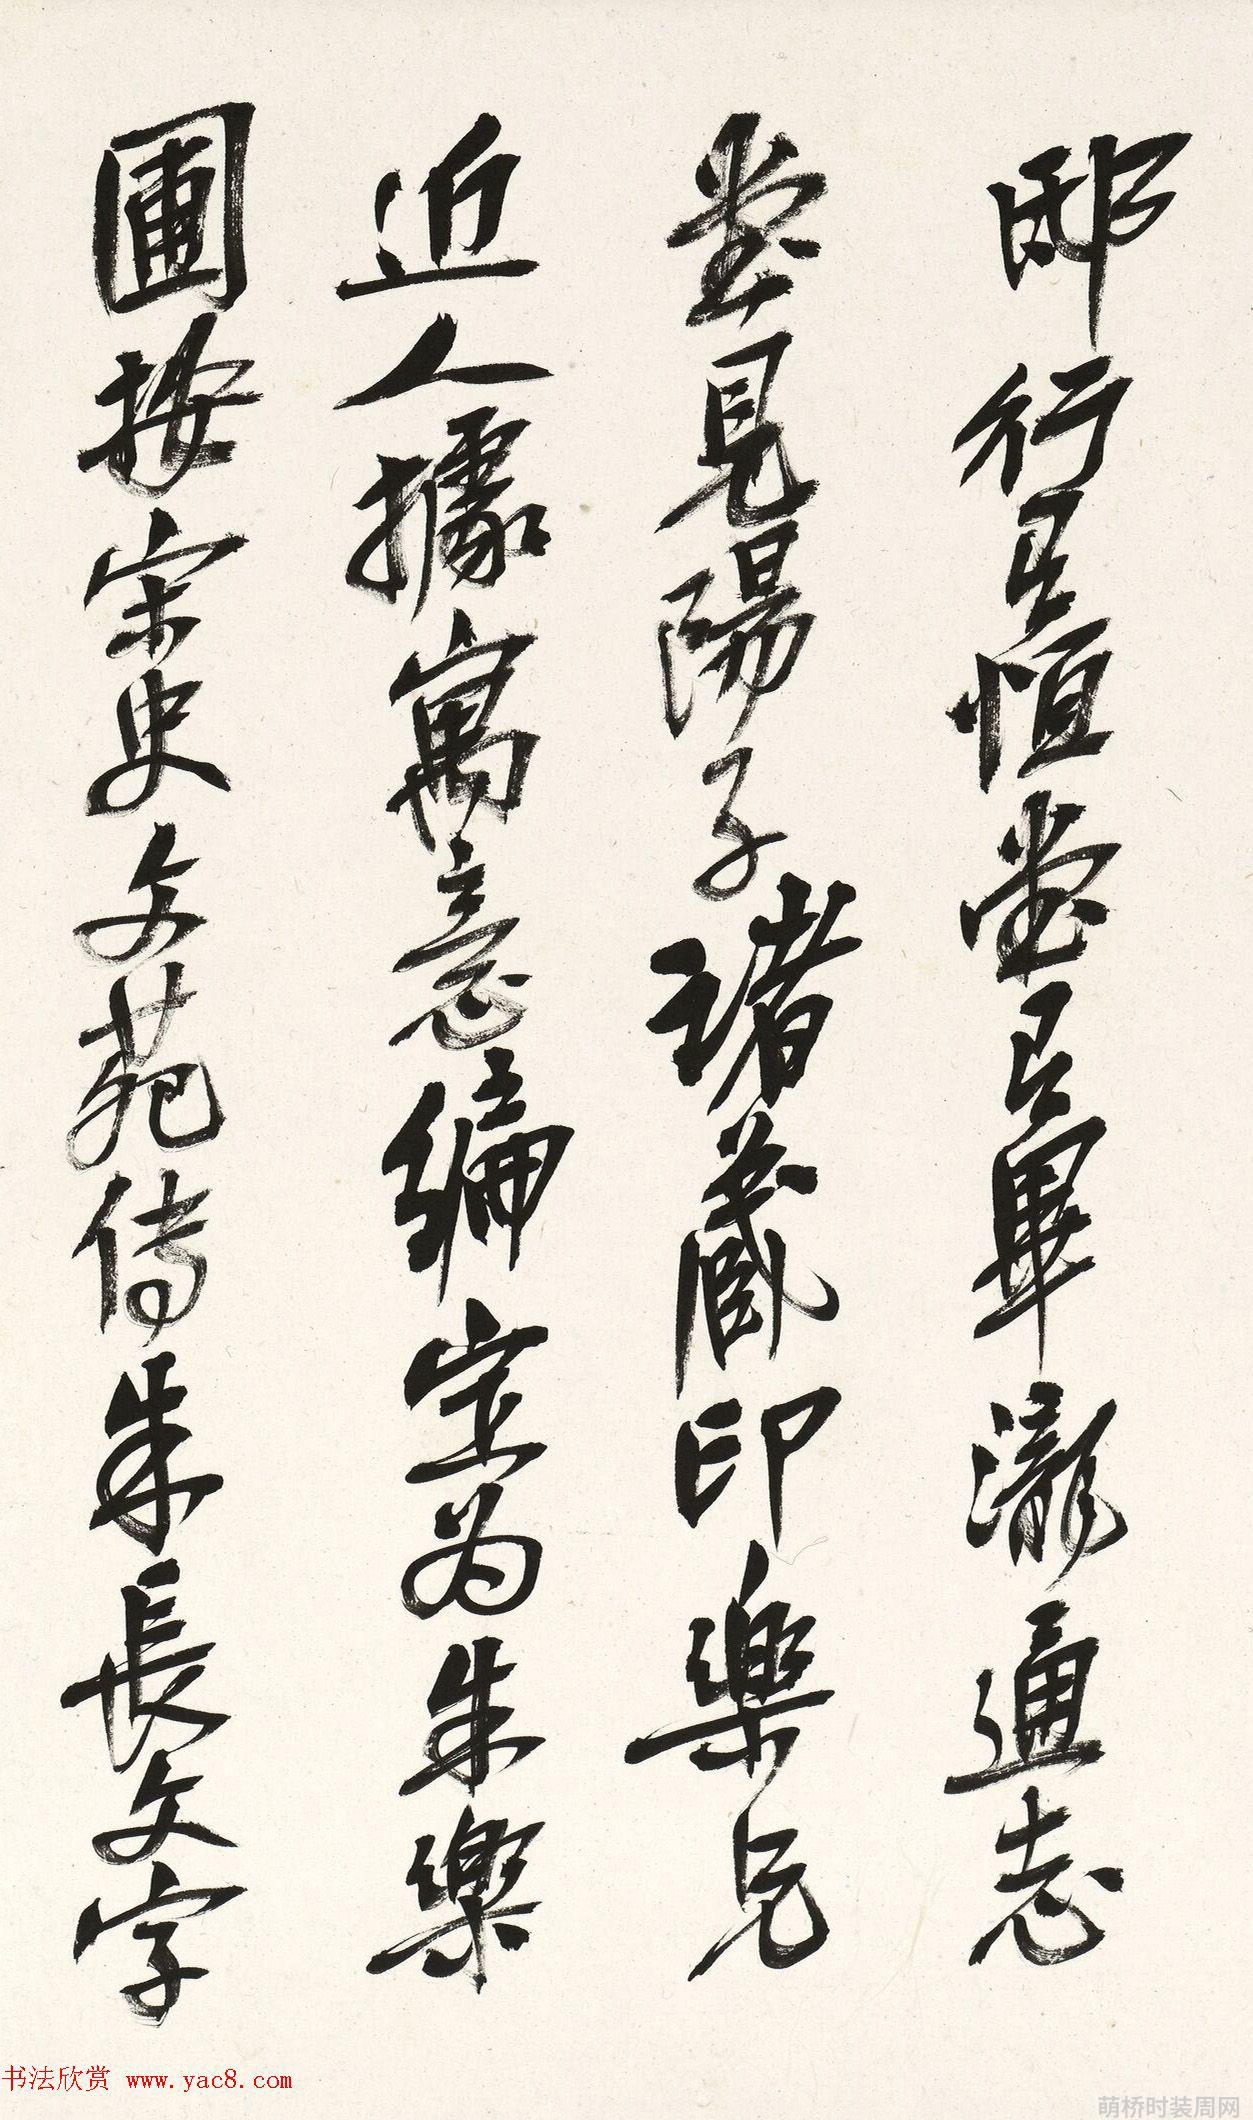 邸行有恒堂有畢瀧通志
堂見陽子珍藏印樂兄
近人據寓意編定为朱樂
圃按宋史文苑傳朱長文字
书法欣赏 www.yac8.com
萌桥时装周网